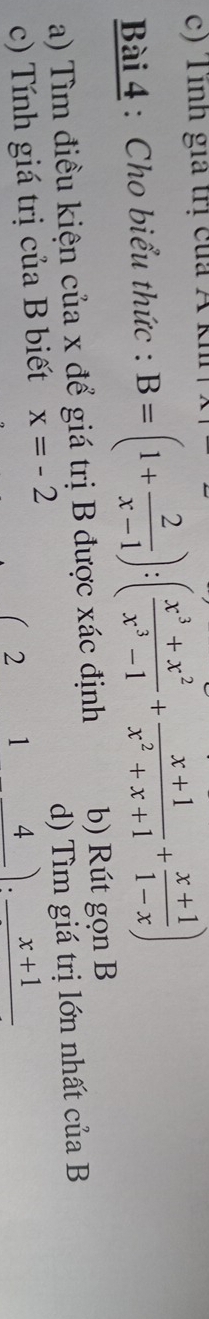 c) Tính giá trị của A khi |x| =
Bài 4 : Cho biểu thức : B = (1 + 2/(x − 1)) : ((x³ + x²)/(x³ − 1) + (x + 1)/(x² + x + 1) + (x + 1)/(1 − x))
a) Tìm điều kiện của x để giá trị B được xác định b) Rút gọn B
c) Tính giá trị của B biết x = - 2 d) Tìm giá trị lớn nhất của B
( 2 1 4 ) : x + 1